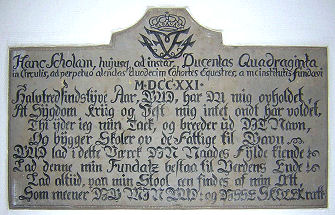 Hanc Scholam, hujusq; ad instar Ducentas Quadraginta
in Circulis, ad perpetuo alendas duodecim Cohortes Equestres, a me institutis fundavi
M·DCC·XXI·
Halvtredsindstyve Aar, GUD, har DU mig opholdet,
At Sygdom Kriig og Pest mig intet ondt har voldet,
Thi yder jeg min Tack, og breeder ud DIT Navn,
Og bygger Skoler op de Fattige til Gavn.
GUD lad i dette Værck DIN Naades Fylde kiende
Lad denne min Fundatz bestaa til Verdens Ende
Lad altid paa min Stool een findes af min Æt,
Som meener DIG MIN GUD og DISSE SKOLER ret.